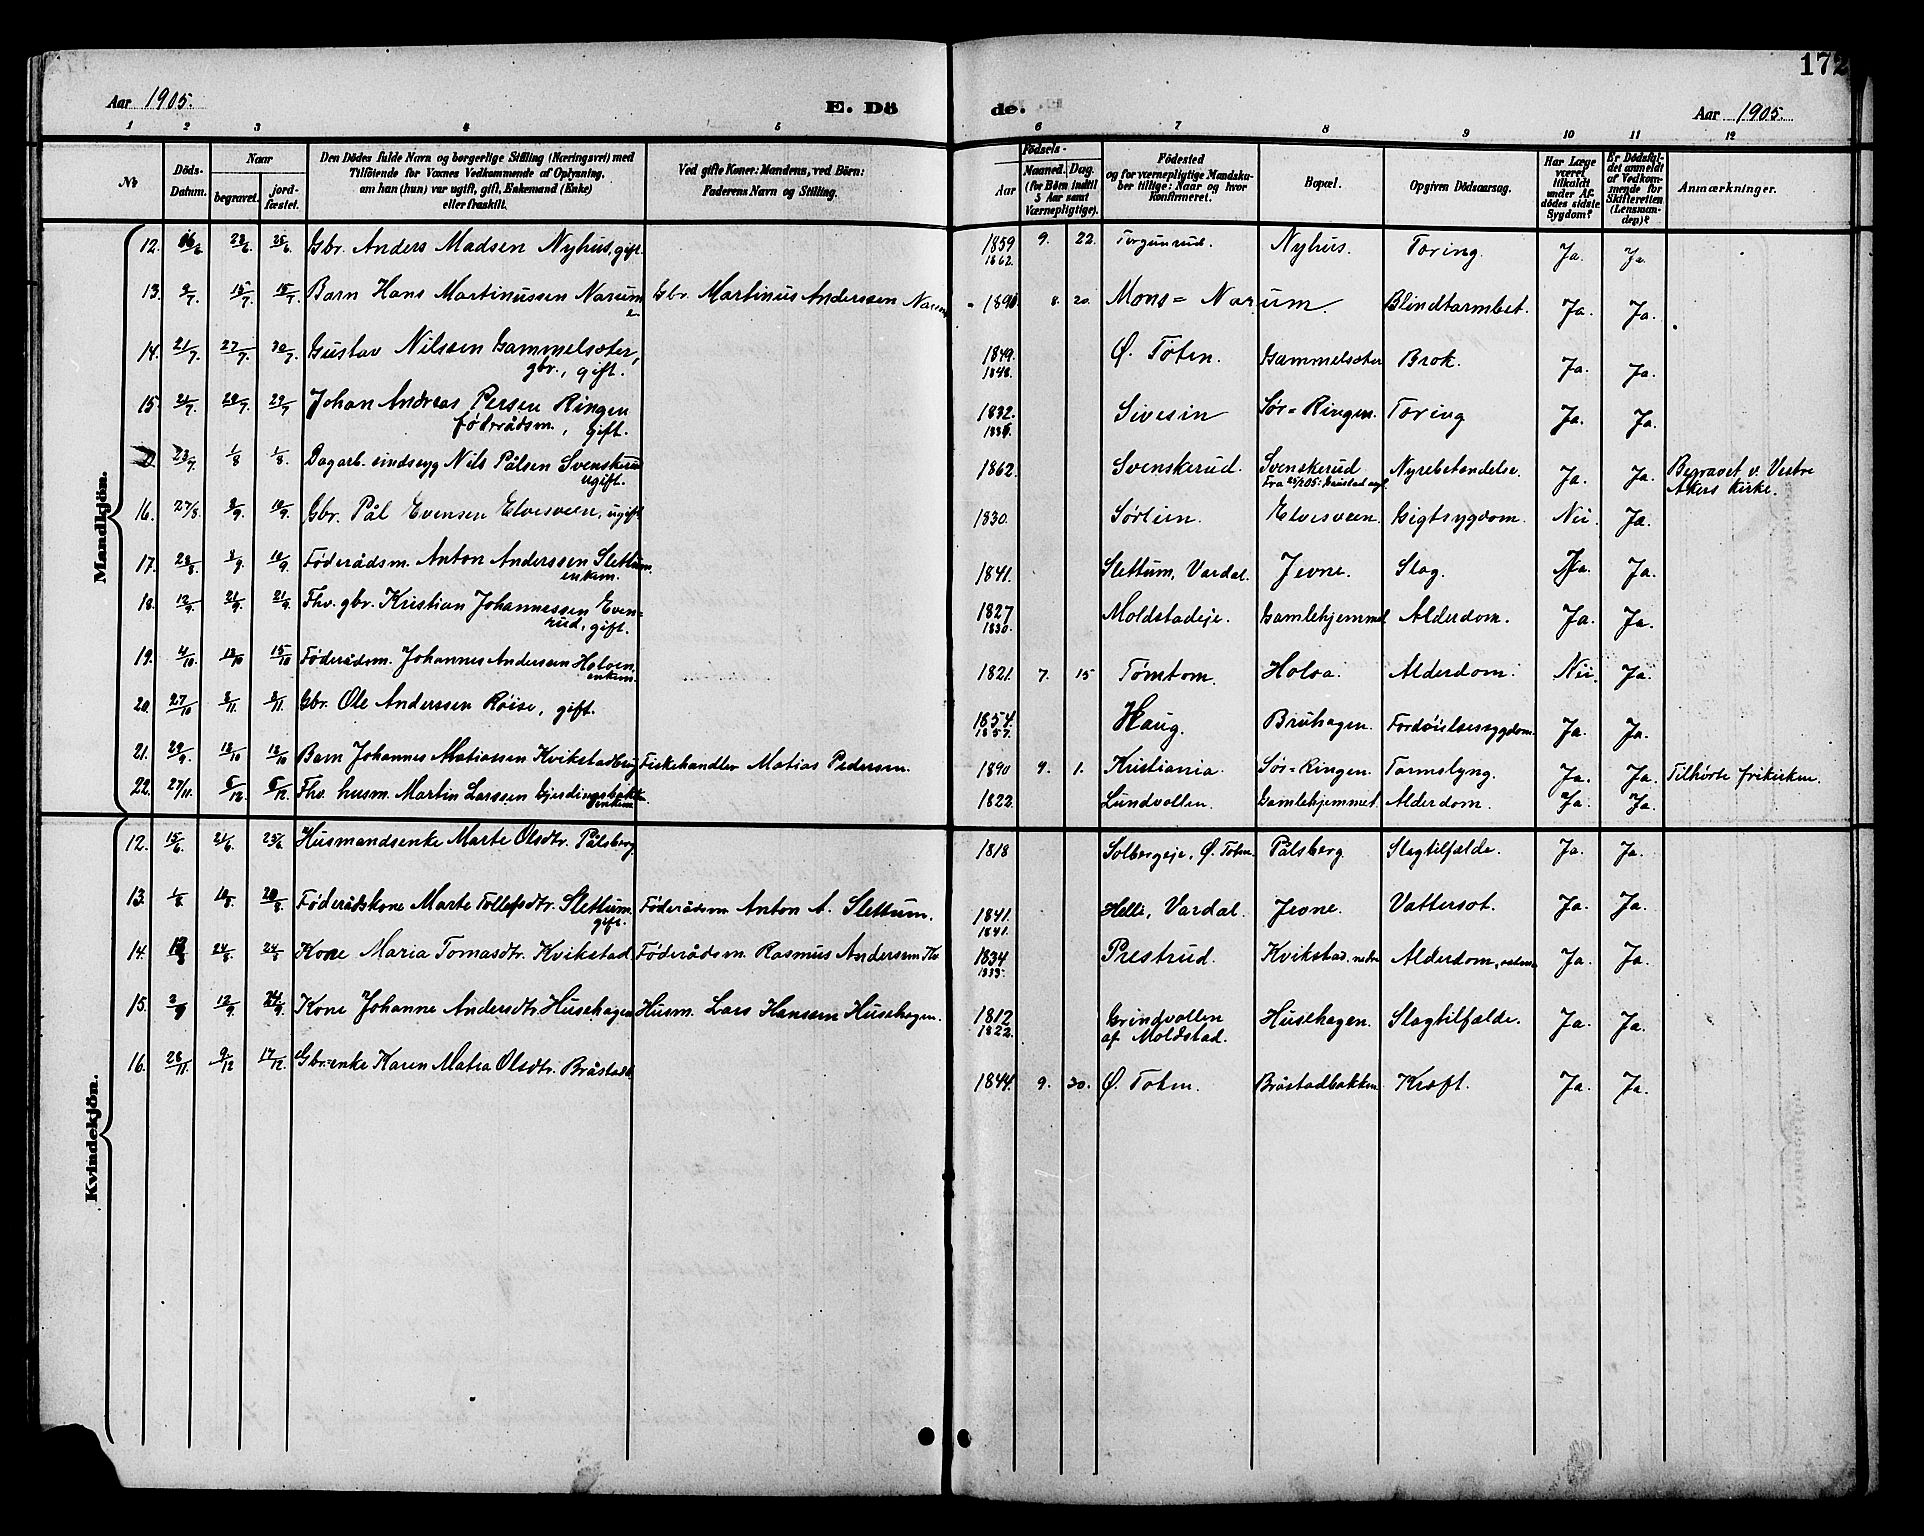 172
Aar 1905. E. Dö de. Aar 1905.
1 2 3 4 5 6 7 8 9 10 11 12
No
Döds-Datum.
Naar
begravet.
jord-fæstet.
Den Dödes fulde Navn og borgerlige Stilling (Næringsvei) med
Tilföiende for Voxnes Vedkommende af Oplysning,
om han (hun) var ugift, gift, Enkemand (Enke)
eller fraskilt.
Ved gifte Koner: Mandens, ved Börn:
Faderens Navn og Stilling.
Födsels-
Aar
Maaned. Dag.
(for Börn indtil
5 Aar samt
Værnepligtige).
Födested
og for værnepligtige Mandska-
ber tillige: Naar og hvor
konfirmeret.
Bopæl.
Opgiven Dödsaarsag.
Har Læge
været
tilkaldt
under Af-
dödes sidste
Sygdom?
Er Dödsfal-
det anmeldt
af Vedkom-
mende for
Skifteretten
(Lensman-
den)?
Anmærkninger.
Mandkjön.
12. 16/6 23/6 25/6 Gbr. Anders Madsen Nyhus, gift. 1859 1862. 9. 22. Torgunrud. Nyhus. Tæring. Ja. Ja.
13. 9/7. 15/7. 15/7. Barn Hans Martinussen Narum Gbr. Martinus Anderssen Narum 8. 20. Mons= Narum. Blindtarmbet. Ja. Ja.
14. 21/7. 27/7. 30/7. Gustav Nilssen Gammelsæter, 1849. 1848. Ø. Toten. Gammelsæter Brok. Ja. Ja.
gbr., gift.
15. 21/7. 28/7. 29/7 Johan Andreas Persen Ringen 1832. Sivesin Sør=Ringen. Tæring Ja. Ja.
føderådsm., gift.
23/7. 1/8 1/8. Dagarb. sindssyg Nils Pålsen Svenskerud 1862. Svenskerud. Svenskerud Nyrebetændelse. Ja. Ja. Begravet v. Vestre
ugift. Akers kirke.
16. 27/8. 8/9. 10/9. Gbr. Pål Evensen Elvesveen, ugift 1830. Sørlien. Elvesveen. Gigtsygdom. Nei. Ja.
17. 28/8. 8/9. 10/9. Føderådsm. Anton Anderssen Slettum. 1841. Slettum, Vardal. Jevne. Slag. Ja. Ja.
enkem.
18. 12/9. 21/9. 21/9. Fhv. gbr. Kristian Johannessen Even- 1827 1830. Moldstadeje. Gamlehjemmet Alderdom. Ja. Ja.
rud, gift.
19. 4/10. 13/10 15/10 Føderådsm. Johannes Anderssen Holoen. 1821. 7. 15 Tømtom. Holoa. Alderdom. Nei. Ja.
enkem.
20. 27/10 8/11. 8/11. Gbr. Ole Anderssen Røise, gift. 1854. 1857. Haug. Bruhagen. Fordøielsessygdom. Ja. Ja.
21. 29/9. 12/10 12/10 Barn Johannes Matiassen Kvikstadbrug Fiskehandler Matias Pedersen. 1890 9. 1. Kristiania. Sør=Ringen. Tarmslyng. Ja. Ja. Tilhørte frikirken.
22. 27/11. 6/12. 6/12. Fhv. husm. Martin Larssen Gjerdingsbakken 1822. Lundvollen. Gamlehjemmet. Alderdom. Ja. Ja.
enkem.
Kvindekjön.
12. 15/6. 21/6. 25/6 Husmandsenke Marte Olsdtr. Pålsberg 1818 Solbergeje, Ø. Toten. Pålsberg Slagtilfælde. Ja. Ja.
13. 1/8 10/8. 20/8. Føderådskone Marte Tollefsdtr. Slettum. Føderådsm Anton A. Slettum. 1841. 1841. Helle, Vardal. Jevne. Vattersot. Ja. Ja.
gift.
14. 24/8. 24/8 Kone Maria Tomasdtr. Kvikstad Føderådsm. Rasmus Anderssen Kv. 1834 1833. Prestrud. Kvikstad, nedre Alderdom, Ja. Ja.
15. 3/9 12/9. 24/9. Kone Johanne Andersdtr. Husehagen Husm. Lars Hansen Husehagen. 1812 1822. Grindvollen Husehagen. Slagtilfælde. Ja. Ja.
af Moldstad.
16. 28/11. 9/12 17/12. Gbr.enke Karen Matea Olsdtr. Bråstadb. 1844. 9. 30. Ø. Toten. Bråstadbakken Kræft. Ja. Ja.